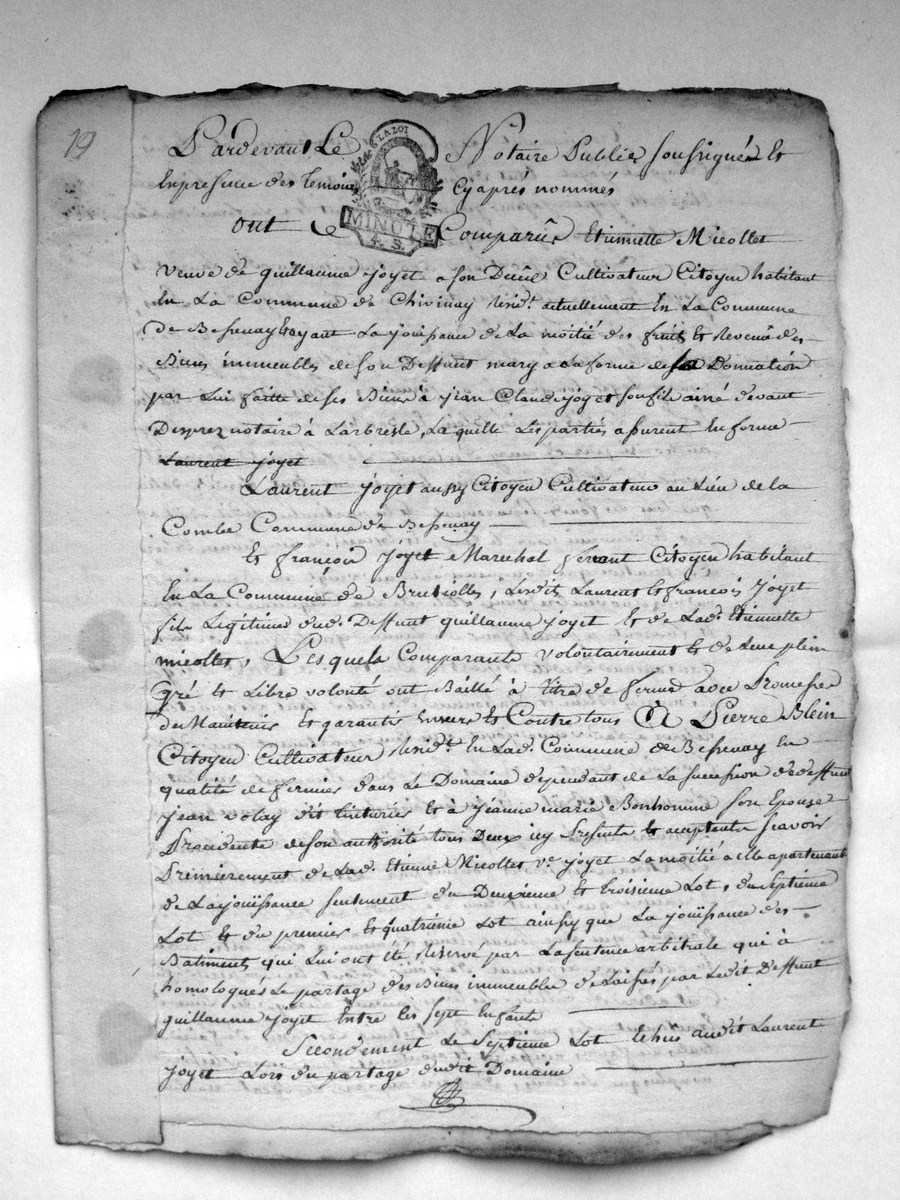 19
LA LOI
MINUTE
4. S.
Pardevant Le Notaire Public soussigné Et
En presence des temoins Cy après nommés
ont Comparûs Etiennette Micollet
veuve de guillaume joyet a son Decüe Cultivateur Citoyen habitant
En La Commune de Chivinay Résidt. actuellement En La Commune
de Bessenay Et ayant La joüissance de La moitié des fruits Et Revenû des
Biens immeubles de son Deffunt mary a la forme de La Donnation
par Lui faitte de ses Biens à jean Claude joyet son fils ainé devant
Desprez notaire à Larbresle, La quelle Les parties assurent En forme
Laurent joyet
Laurent joyet aussy Citoyen Cultivateur au Lieu de La
Combe Commune de Bessenay
Et françois joyet Marechal ferant Citoyen habitant
En La Commune de Brussiolles, Lesdits Laurent Et françois joyet
fils Legitimes dud. Deffunt guillaume joyet Et de Lad. Etiennette
micollet, Lesquels Comparants volontairement Et de Leur plein
gré Et Libre volonté ont Baillé à titre de ferme avec Promesse
de Maintenir Et garantir Envers Et Contre tous à Pierre Blein
Citoyen Cultivateur Residt. En Lad. Commune de Bessenay En
qualité de fermier dans Le Domaine dependant de La succession de deffunt
jean volay dit tinturier Et à jeanne marie Bonhomme son Epouse
Procedente de son authorité tous Deux icy Presents Et acceptents scavoir
Premierement de Lad. Etienne Micollet ve. joyet La moitié a Elle apartenant
de La joüissance seulement du Deuxieme Et troisieme Lot, du septieme
Lot Et du premier Et quatrieme Lot ainsy que La joüissance des
Batiments qui Lui ont été Reservé par La sentence arbitrale qui à
homologués Le partage des Biens immeubles de Laissés par Ledit Deffunt
guillaume joyet Entre Les sept Enfants
Secondement Le Septieme Lot Echûs audit Laurent
joyet Lors du partage dudit Domaine